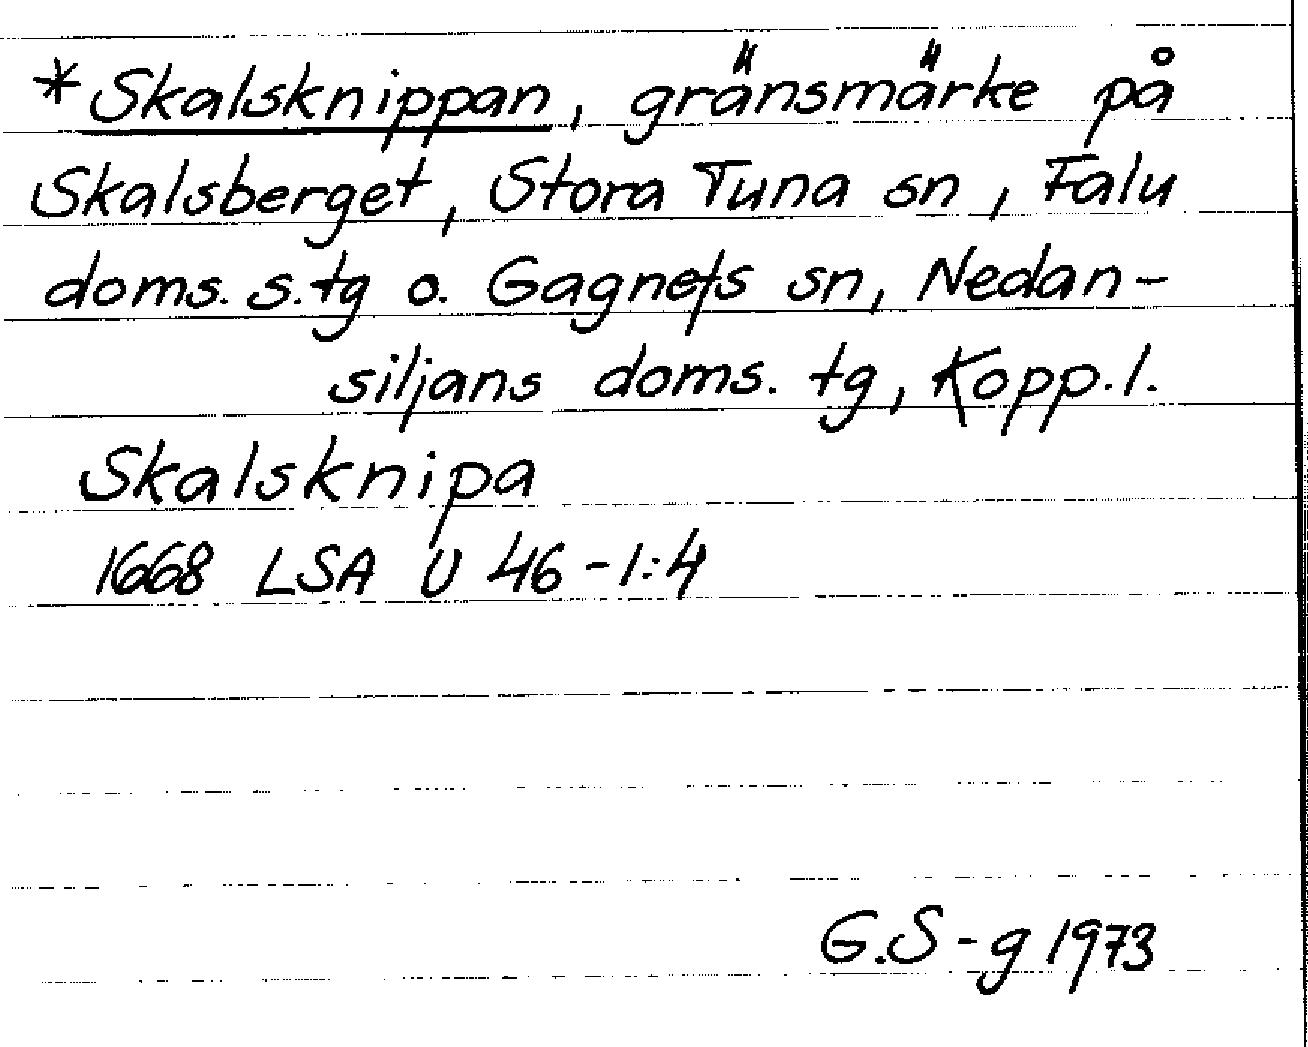 *Skalsknippan, gränsmärke på
Skalsberget, Stora Tuna sn, Falu
doms. s. tg o. Gagnefs sn, Nedan-
siljans doms. tg, Kopp. l.
Skalsknipa
1668 LSA U 46-1:4
G.S-g 1973